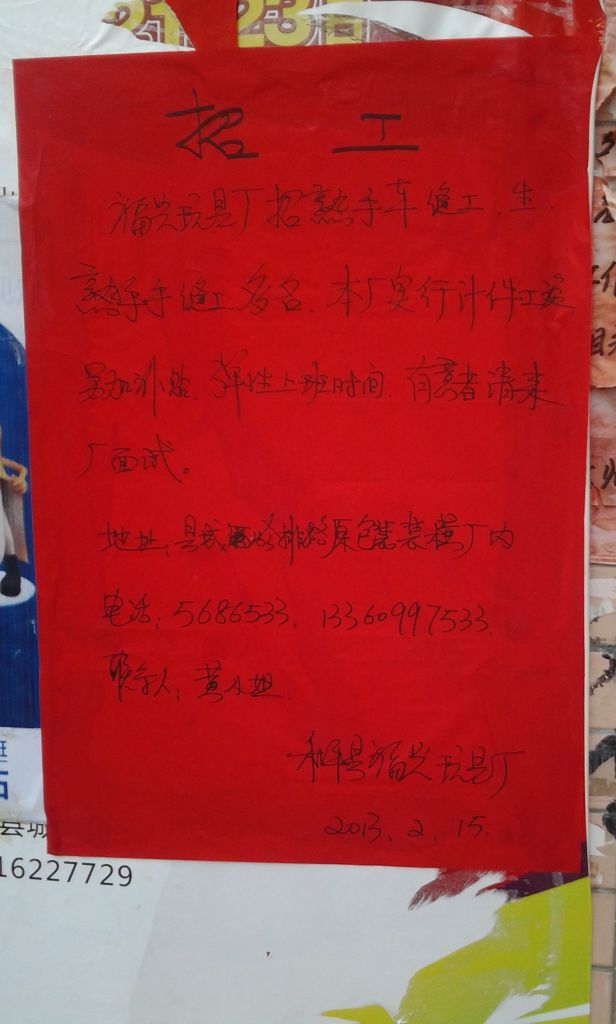 21 23日
招 工
福兴玩具厂招熟手车缝工、生、
熟手手缝工多名,本厂实行计件工资
另加补贴,弹性上班时间,有意者请来
厂面试。
地址:县城 排 原包装 厂内
电话:5686533、13360997533
联系人:黄小姐
和平县福兴玩具厂
2013.2.15.
16227729